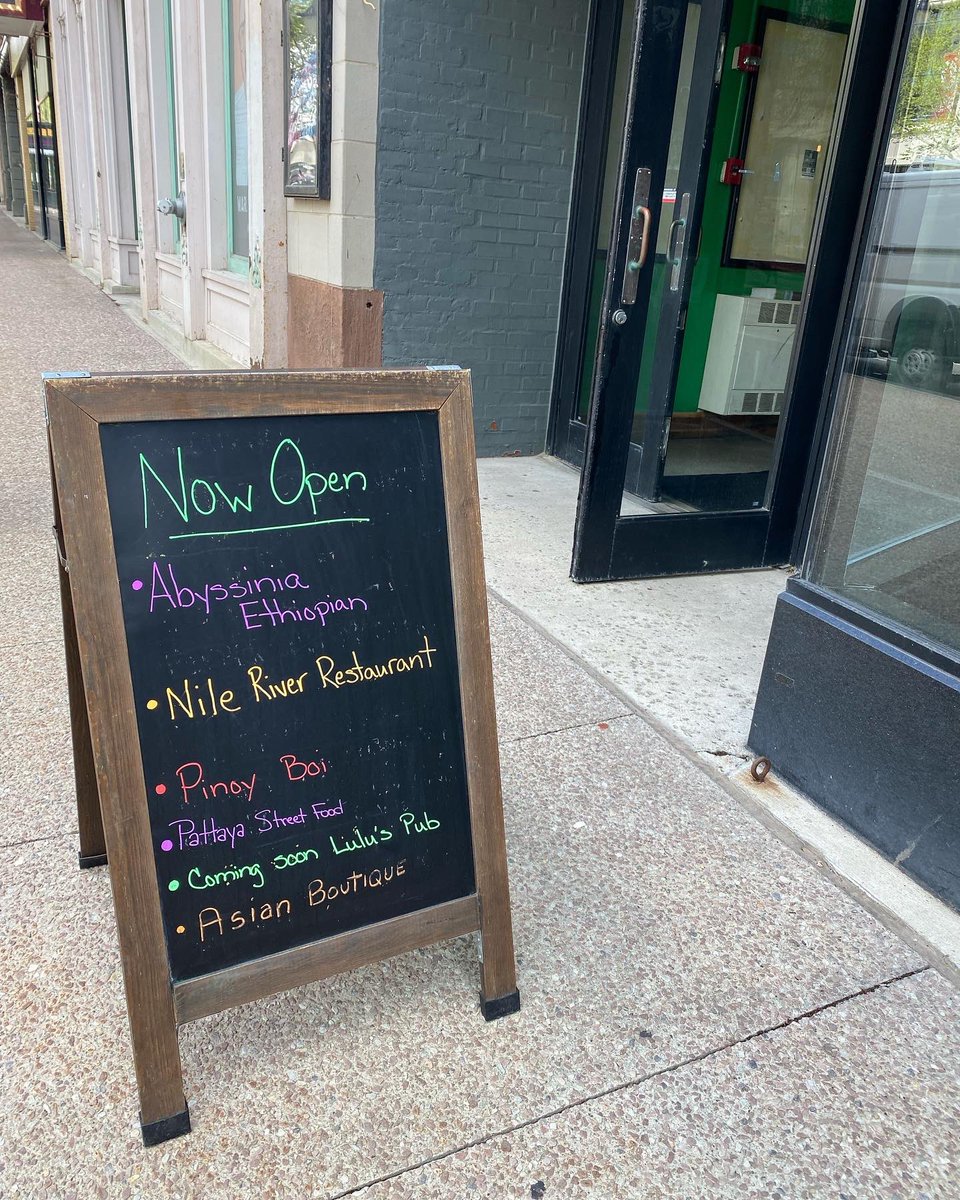 Now Open
• Abyssinia
Ethiopian
• Nile River Restaurant
• Pinoy Boi
• Pattaya Street Food
• Coming soon Lulu's Pub
• Asian Boutique